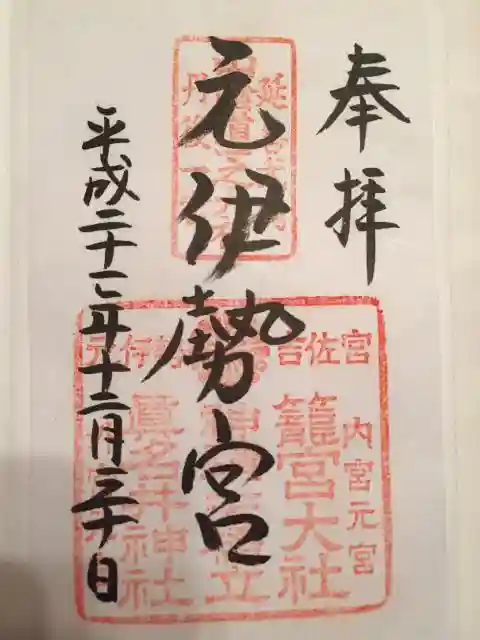 奉拝
元伊勢宮
平成二十二年十二月三十日
吉佐宮
内宮元宮
籠宮大社
眞名井神社